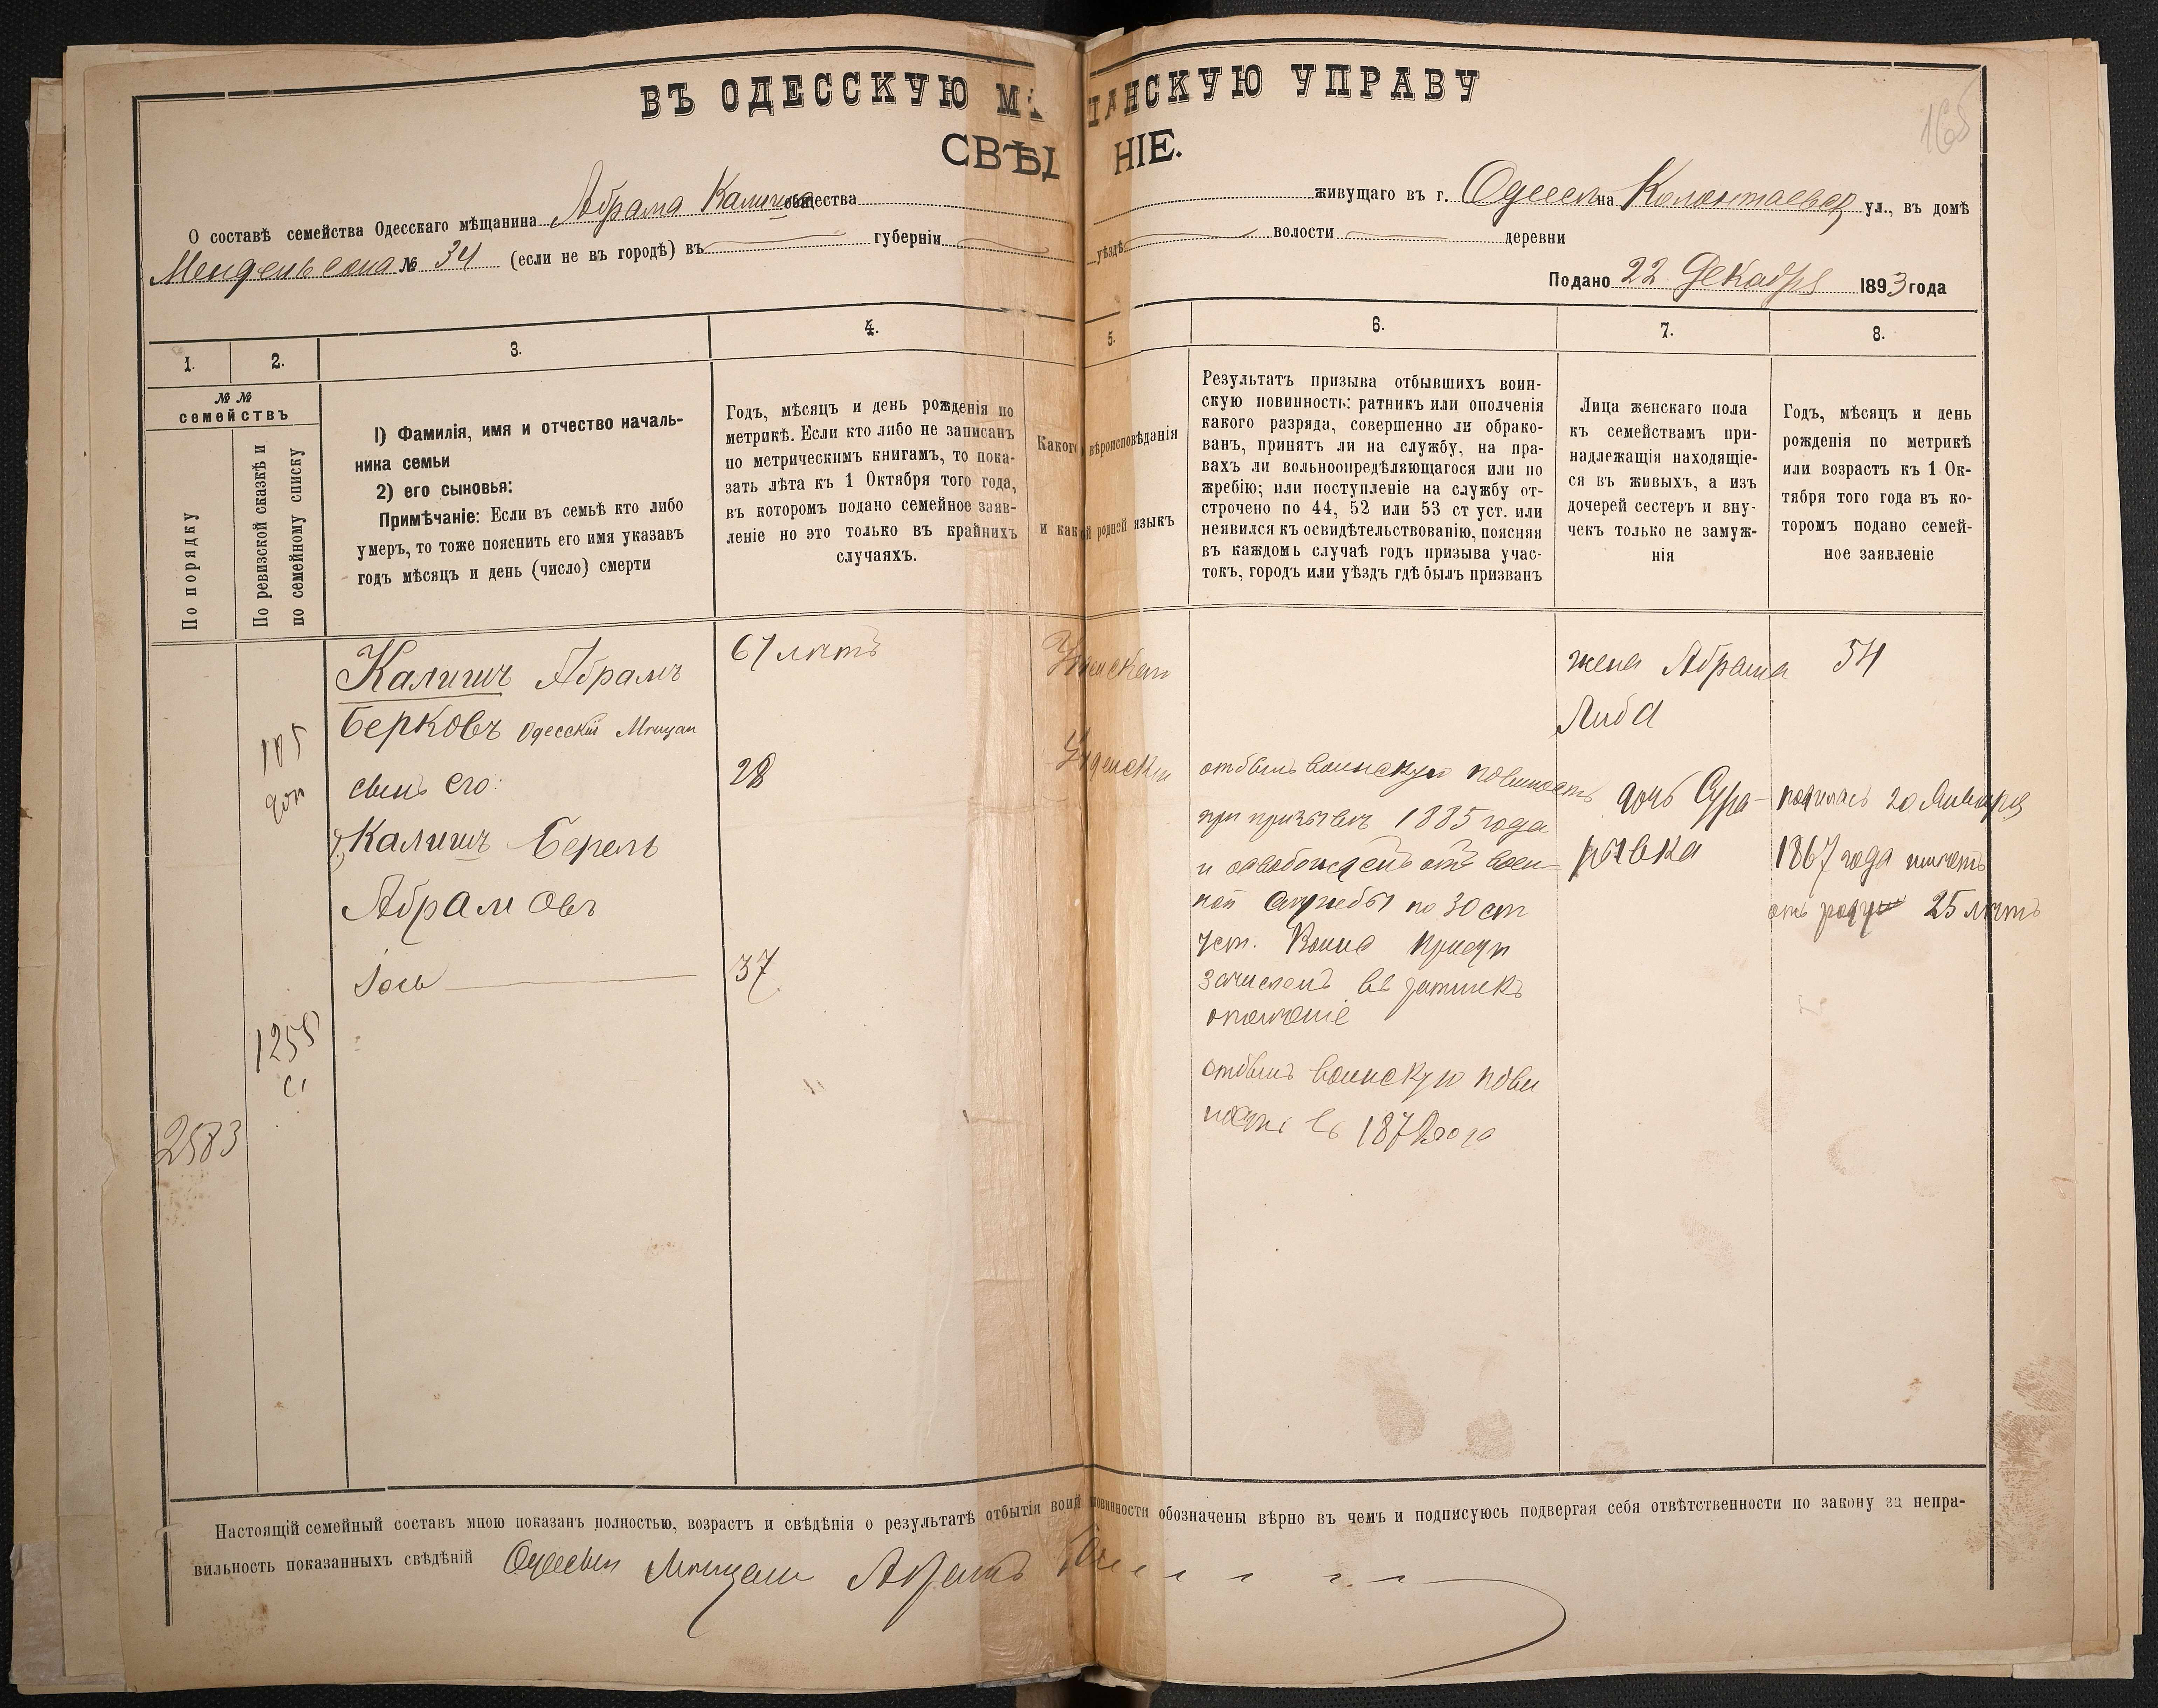 ВЪ ОДЕССКУЮ М АНСКУЮ УПРАВУ
СВѢД НІЕ.
165
О составѣ семейства Одесскаго мѣщанина Абрама Калиша общества живущаго въ г. Одессѣ на Колонтаевск ул., въ домѣ
Мендельсона № 34 (если не въ городѣ) въ губерніи уѣздѣ волости деревни
Подано 22 Декабря 1893 года
1. 2. 3. 4. 5. 6. 7. 8.
№ №
семействъ
По порядку
По ревизской сказкѣ и
по семейному списку
1) Фамилія, имя и отчество началь-
ника семьи
2) его сыновья:
Примѣчаніе: Если въ семьѣ кто либо
умеръ, то тоже пояснить его имя указавъ
годъ мѣсяцъ и день (число) смерти
Годъ, мѣсяцъ и день рожденія по
метрикѣ. Если кто либо не записанъ
по метрическимъ книгамъ, то пока-
зать лѣта къ 1 Октября того года,
въ которомъ подано семейное заяв-
леніе но это только въ крайнихъ
случаяхъ.
Какого вѣроисповѣданія
и какой родной языкъ
Результатъ призыва отбывшихъ воин-
скую повинность: ратникъ или ополченія
какого разряда, совершенно ли обрако-
ванъ, принятъ ли на службу, на пра-
вахъ ли вольноопредѣляющагося или по
жребію; или поступленіе на службу от-
строчено по 44, 52 или 53 ст уст. или
неявился къ освидѣтельствованію, поясняя
въ каждомъ случаѣ годъ призыва учас-
токъ, городъ или уѣздъ гдѣ былъ призванъ
Лица женскаго пола
къ семействамъ при-
надлежащія находящіе-
ся въ живыхъ, а изъ
дочерей сестеръ и вну-
чекъ только не замуж-
нія
Годъ, мѣсяцъ и день
рожденія по метрикѣ
или возрастъ къ 1 Ок-
тября того года въ ко-
торомъ подано семей-
ное заявленіе
2583
105
доп
1258
с.
Калишъ Абрамъ
Берковъ Одесскій Мѣщан
сынъ его:
Калишъ Берель
Абрамовъ
Іось
67 лѣтъ
28
37
Іудейскаго
Іудейски
отбылъ воинскую повиность
при призывѣ 1885 года
и освобожденъ отъ воен-
ной службы по 30 ст
уст.
зачисленъ въ ратникъ
ополченіе
отбылъ воинскую пови
ность въ
жена Абрама
Либа
дочь Сура-
рывка
54
родилась 20 Января
1867 года имѣетъ
отъ роду 25 лѣтъ
Настоящій семейный составъ мною показанъ полностью, возрастъ и свѣдѣнія о результатѣ отбытія воин повинности обозначены вѣрно въ чемъ и подписуюсь подвергая себя отвѣтственности по закону за непра-
вильность показанныхъ свѣдѣній Одесскій Мѣщанин Абрамъ